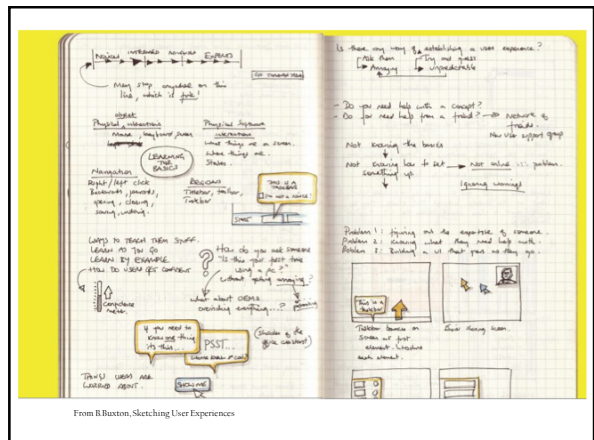 NOVICES INTERMED ADVANCED EXPERTS
May stop anywhere on this
line, which is fine!
Physical, interactions
Mouse, keyboard, screen
Physical Software
interactions
Where things are on screen.
Where things are.
States.
LEARNING
THE
BASICS
Navigation
Right/left click
Backwards, forwards,
opening, closing,
saving, undoing.
REGIONS
Titlebar, toolbar,
Taskbar
THIS IS A
TASKBAR
START
WAYS TO TEACH THEM STUFF.
LEARN AS YOU GO
LEARN BY EXAMPLE
HOW DO USERS GET CONFIDENT
confidence
meter.
?
How do you ask someone
"Is this your first time
using a pc?"
without getting annoying?
what about OEMs
overriding everything...?
If you need to
know one thing
it's this...
PSST...
(Shades of the
office assistant)
THINGS USERS ARE
WORRIED ABOUT.
SHOW ME
Is there any way of establishing a user experience?
Ask them
Annoying
Try and guess
unpredictable
- Do you need help with a concept?
- Do you need help from a friend? Network of
friends.
New User support group
Not knowing the basics
Not knowing how to get
something up
Not online problem.
Ignoring warnings
Problem 1: figuring out the expertise of someone.
Problem 2: Knowing what they need help with.
Problem 3: Building a UI that grows as they go.
This is a
taskbar
Taskbar bounces on
screen at first
element. Introduce
each element.
Buddy sharing screen.
From B.Buxton, Sketching User Experiences